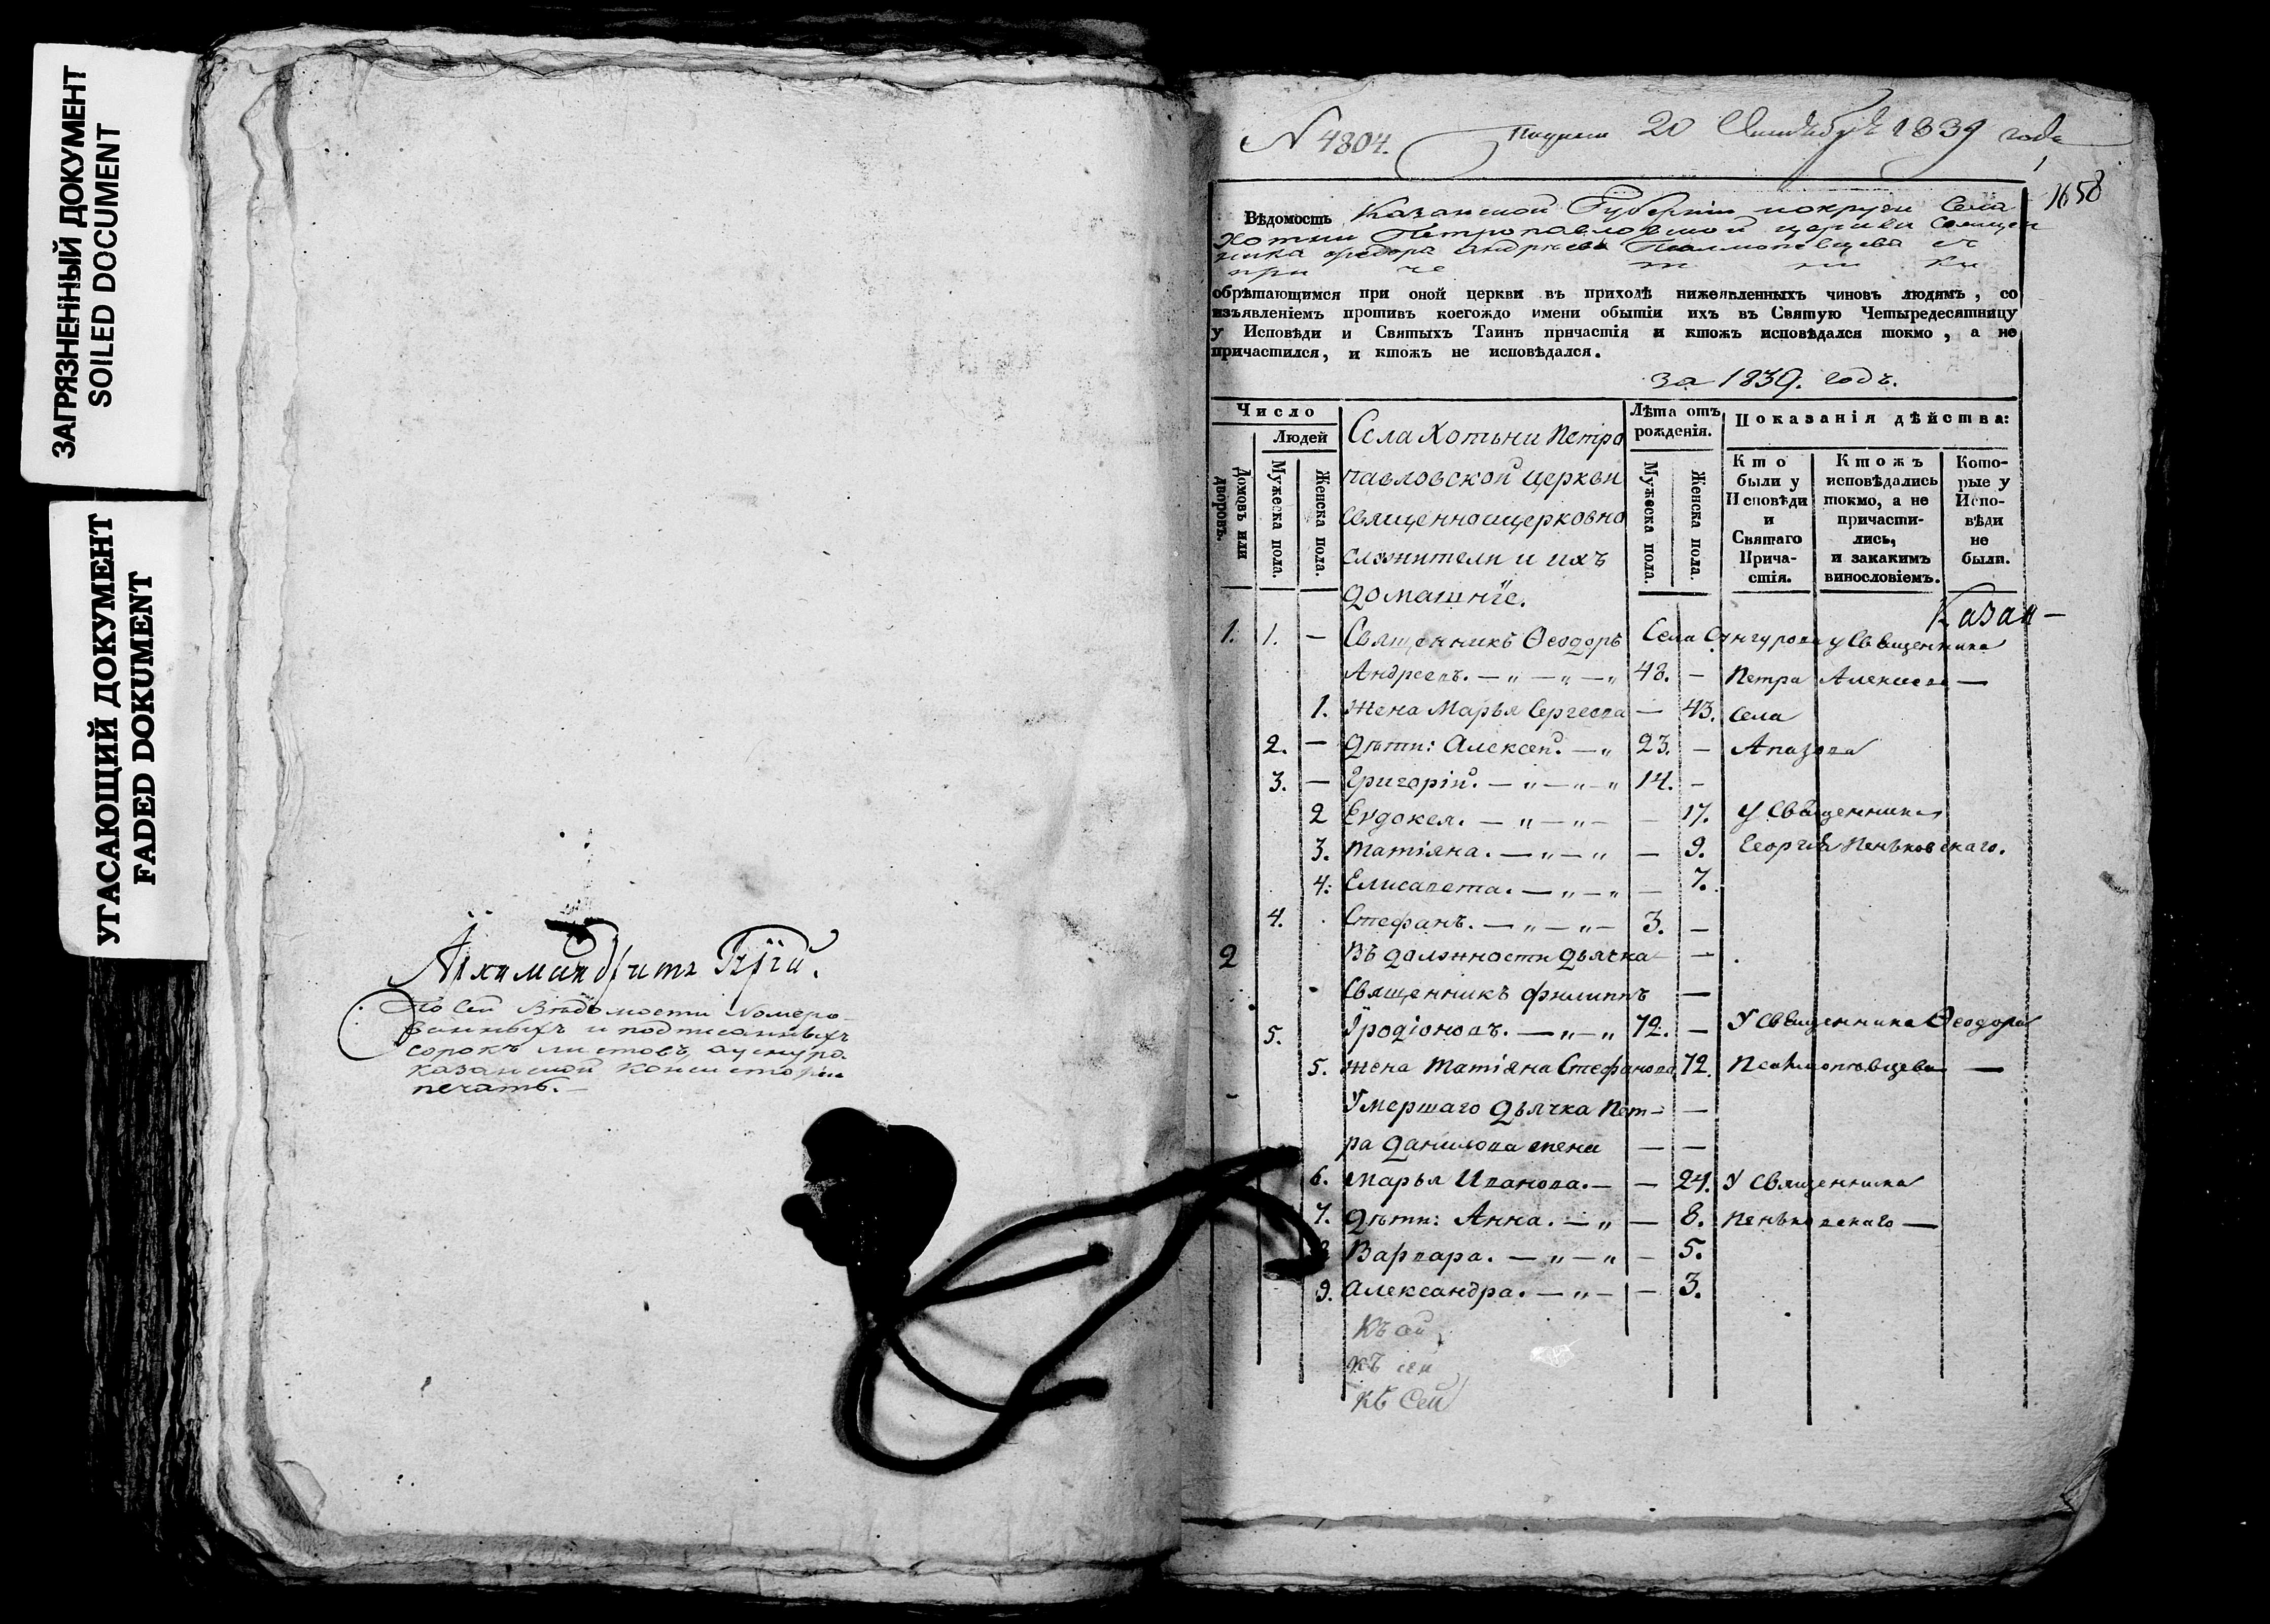 ЗАГРЯЗНЕННЫЙ ДОКУМЕНТ
SOILED DOCUMENT
УГАСАЮЩИЙ ДОКУМЕНТ
FADED DOKUMENT
По сей Вѣдомости Номеро-
ванныхъ и подписанныхъ
сорокъ листовъ,
казанской консисторіи
печать.—
N 4804. 20 1839 года
1658
Вѣдомость Казанской Губерніи и округи Села
Хотни Петропавловской церкви Священ
ника Федора Андрѣева Псалмопѣвцева съ
при че т ни ки
обрѣтающимся при оной церкви въ приходѣ нижеявленныхъ чиновъ людямъ, со
изъявленіемъ противъ коегождо имени обытіи ихъ въ Святую Четыредесятницу
у Исповѣди и Святыхъ Таинъ причастія и ктожъ исповѣдался токмо, а не
причастился, и ктожъ не исповѣдался.
за 1839. годъ.
Число
Людей
Домовъ или дворовъ.
Мужеска пола.
Женска пола.
Села Хотьни Петро
павловской церкви
священноицерковно
служители и ихъ
домашніе.
Лѣта отъ рожденія.
Мужеска пола.
Женска пола.
Показанія дѣйства:
Кто были у Исповѣди и Святаго Прича-стія.
Ктожъ исповѣдались токмо, а не причасти-лись, и закакимъ винословіемъ.
Кото-рые у Испо-вѣди не были.
Казан—
1. 1. — Священникъ Ѳеодоръ Села Сунгурова у Священника
Андреевъ. — „ — „ — „ 48. — Петра Алексеева —
1. жена Марья Сергеева — 43. Села
2. — дѣти: Алексей. — „ 23. — Апазова
3. — Григорій. — „ — „ — „ 14. —
2 Евдокея. — „ — „ — — 17. У Священника
3. Татіяна. — „ — „ — 9. Георгія Пеньковскаго.
4. Елисавета. — „ — „ — 7.
4. Стефанъ. — „ — „ — 3. —
2 Въ должности дьячка —
Священникъ Филиппъ —
5. Иродіоновъ. — „ — „ 72. — У Священника Ѳеодора
5. жена Татіяна Стефанова 72. Псалмопѣвцева —
Умершаго дьячка Пет- —
ра Данилова жена — —
6. Марья Иванова. — — 24. У Священника
7. дѣти: Анна. — „ — 8. Пеньковскаго —
Варвара. — „ — „ — 5.
9. Александра. — „ — — 3.
Къ сей
къ сей
къ Сей